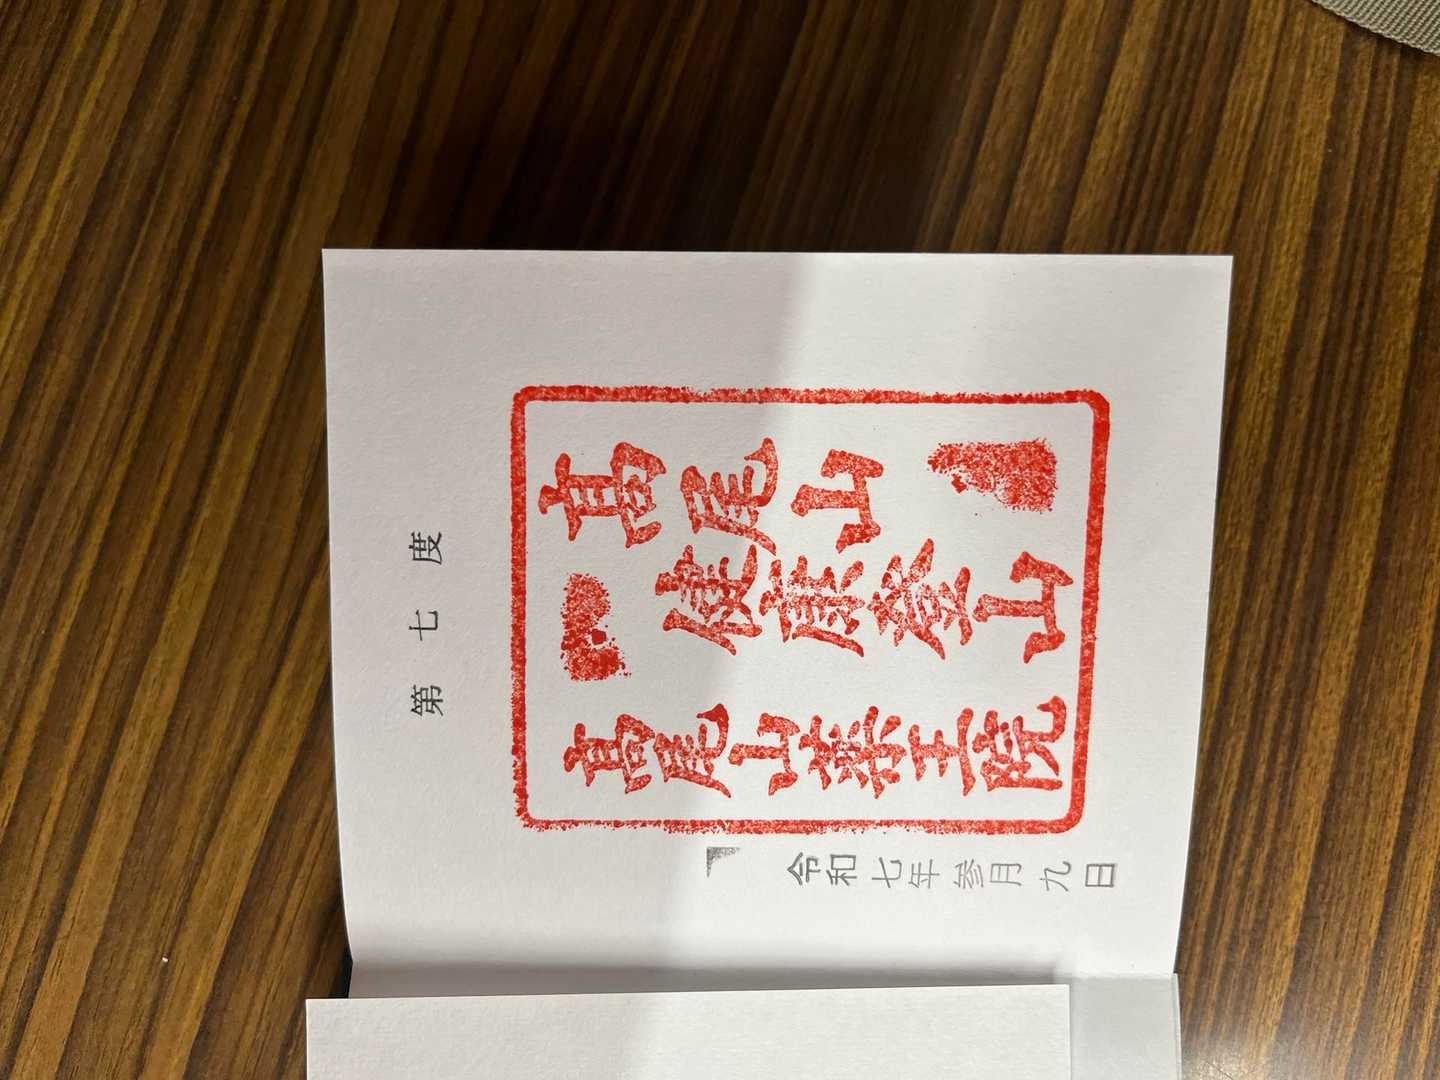 第七度
高尾山
健康登山
高尾山薬王院
令和七年参月九日